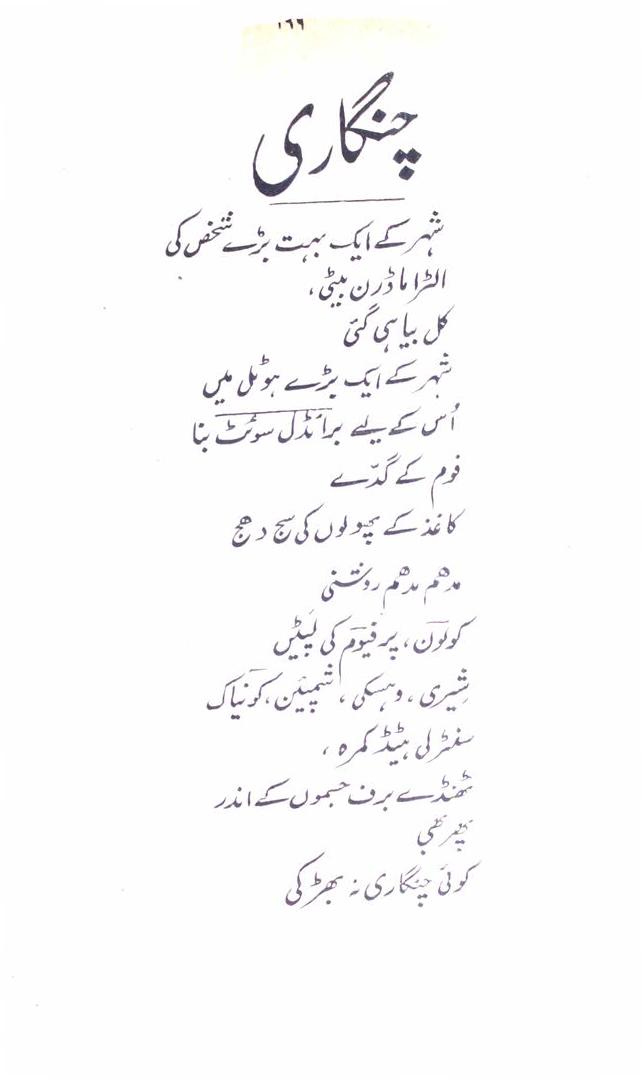 ۱۶۶
چنگاری
شہر کے ایک بہت بڑے شخص کی
الٹرا ماڈرن بیٹی،
کل بیاہی گئی
شہر کے ایک بڑے ہوٹل میں
اُس کے لیے برائڈل سوئٹ بنا
فوم کے گدّے
کاغذ کے پھولوں کی سج دھج
مدھم مدھم روشنی
کولون، پرفیوم کی لپٹیں
شیری، وہسکی، شمپئین، کونیاک
سنٹرلی ہیٹڈ کمرہ،
ٹھنڈے برف جسموں کے اندر
پھر بھی
کوئی چنگاری نہ بھڑکی